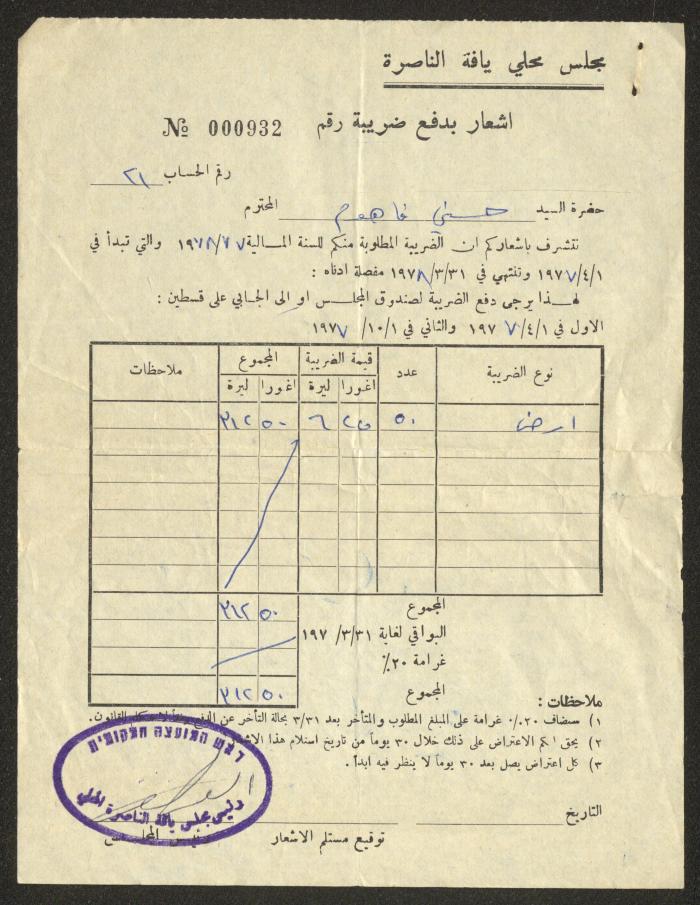 مجلس محلي يافة الناصرة
اشعار بدفع ضريبة رقم 000932 №
رقم الحساب ٢١
حضرة السيد حسني فاهوم المحترم
نتشرف باشعاركم ان الضريبة المطلوبة منكم للسنة المالية ١٩٧٨/٧٧ والتي تبدأ في
١٩٧٧/٤/١ وتنتهي في ١٩٧٨/٣/٣١ مفصلة ادناه :
لهذا يرجى دفع الضريبة لصندوق المجلس او الى الجابي على قسطين :
الاول في ١٩٧٧/٤/١ والثاني في ١٩٧٧/١٠/١
نوع الضريبة عدد قيمة الضريبة المجموع ملاحظات
اغورا ليرة اغورا ليرة
ارض ٥٠ ٢٥ ٦ ٥٠ ٣١٢
المجموع ٥٠ ٣١٢
البواقي لغاية ١٩٧ /٣/٣١
غرامة ٢٠٪
المجموع ٥٠ ٣١٢
ملاحظات :
١) ستضاف ٢٠٪ غرامة على المبلغ المطلوب والمتأخر بعد ٣/٣١ بحالة التأخر عن الدفع القانون.
٢) يحق لكم الاعتراض على ذلك خلال ٣٠ يوماً من تاريخ استلام هذا الاشعار
٣) كل اعتراض يصل بعد ٣٠ يوماً لا ينظر فيه ابداً .
ראש המועצה המקומית
رئيس مجلس يافة الناصرة المحلي
التاريخ
توقيع مستلم الاشعار رئيس المجلس